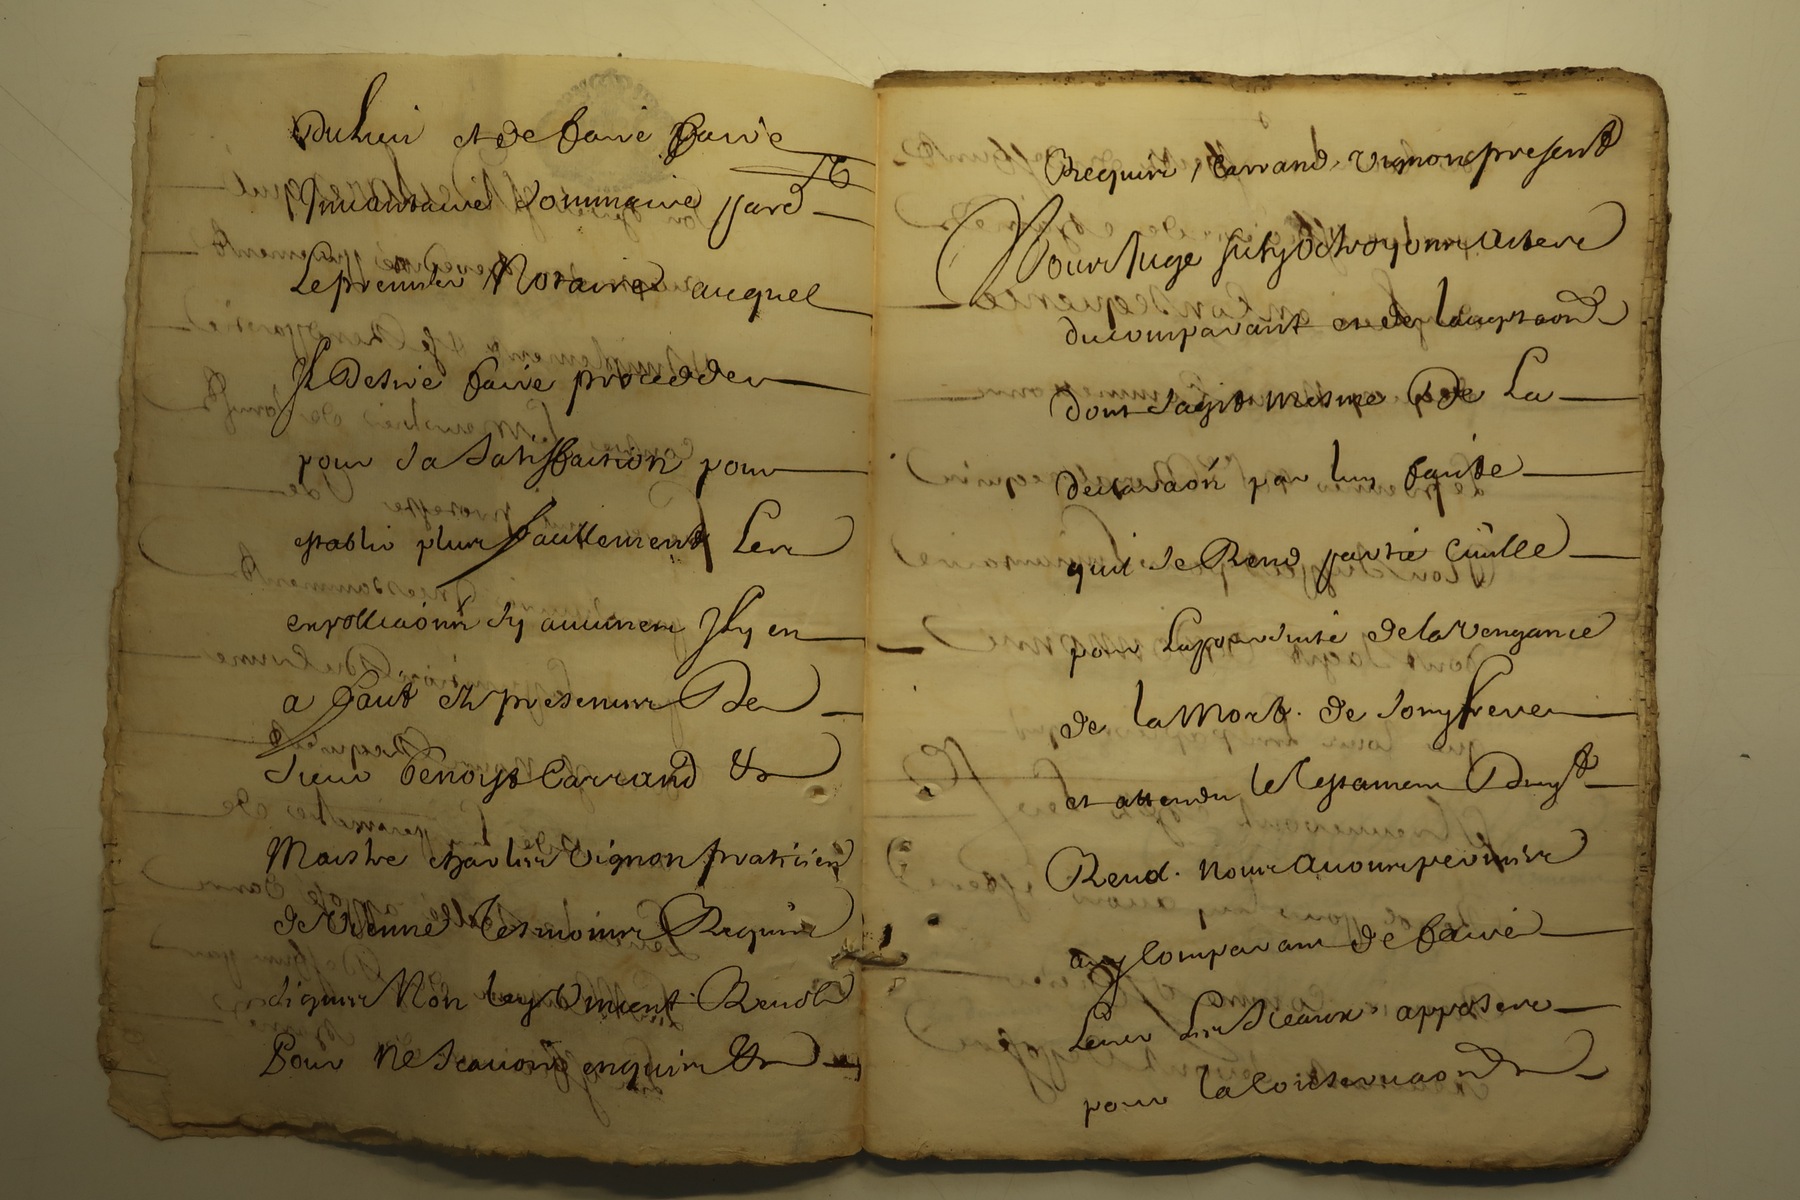 et de faire faire
Inuantaire Sommaire pard
Le premier Notaire auquel
Il Desire faire procedder
pour sa Satisffaction pour
establir plus facillement Les
sy aucunes Il y en
a faict en presence De
sieur Benoist Carrand &
Maistre charles Vignon praticien
de Vienne tesmoins Requis
signes Non
Pour ne scauoir enquis &
Requis, Carrand. Vignon present
Nous Juge susd octroyons acte
du comparant et de
dont sagit mesme De La
declaraôn par luy faicte
quil se Rend partie ciuille
pour La poursuite de la Vengance
de la Mort. de son frere
et attendu le Testament Dont
Nous auons permis
aud comparant de faire
Leuer Les Sceaux apposes
pour la conseruaon